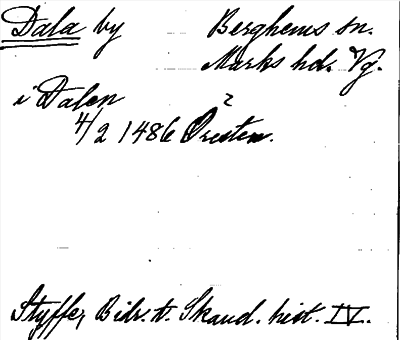 Dala by Berghems sn.
Marks hd. Vg.
i Dalen
4/2 1486 Öresten.
Styffe, Bidr. t. Skand. hist. IV.